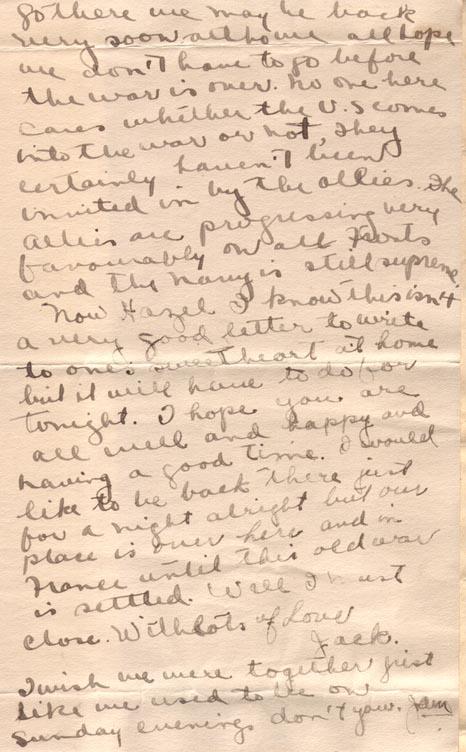 go there we may be back
very soon at home all hope
we don't have to go before
the war is over. No one here
cares whether the U.S comes
into the war or not, They
certainly haven't been
invited in by the allies. The
allies are progressing very
favourably on all fronts
and the navy is still supreme.
Now Hazel I know this isn't
a very good letter to write
to ones sweetheart at home
but it will have to do for
tonight. I hope you are
all well and happy and
having a good time. I would
like to be back there just
for a night alright but our
place is over here and in
France until this old war
is settled. Well I must
close. With lots of Love
Jack.
I wish we were together just
like we used to be on
Sunday evenings don't you.